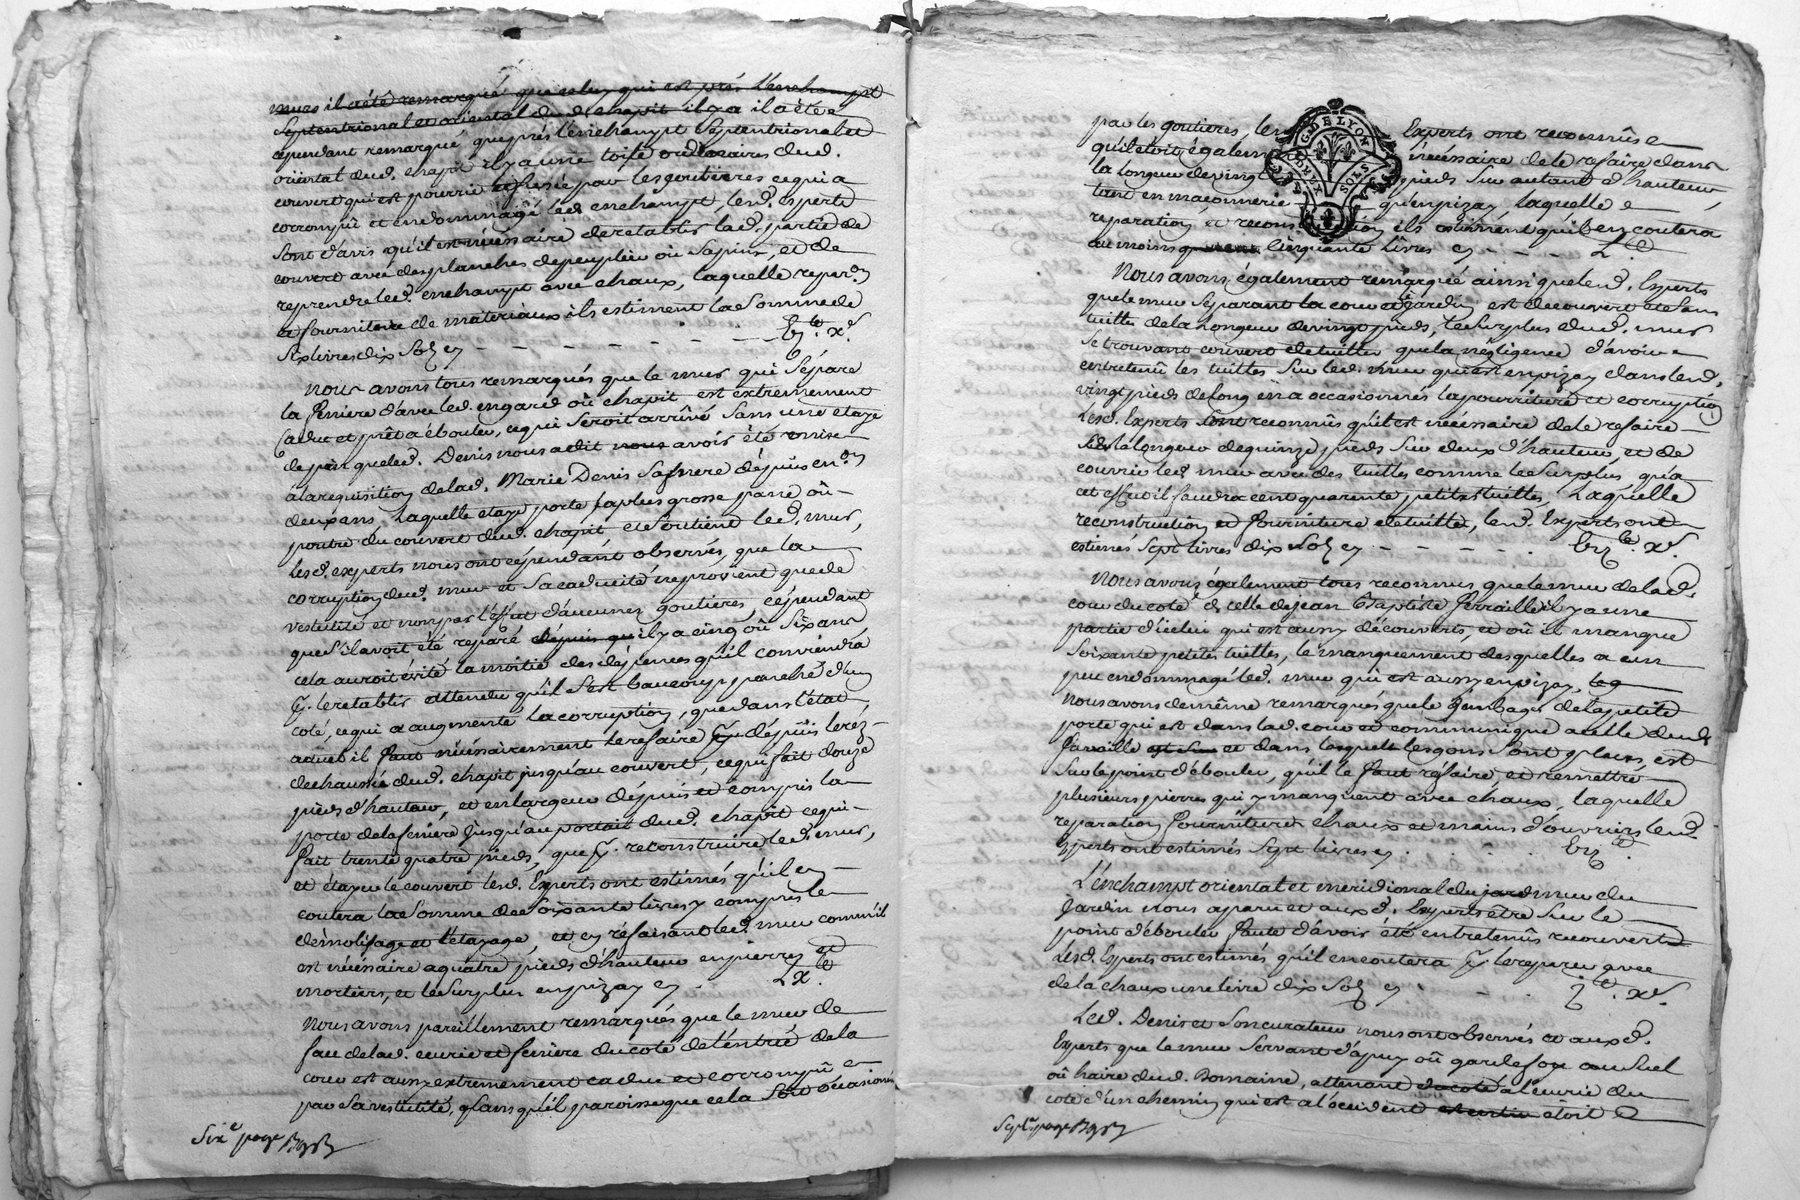 murs il a été remarqué que celuy qui est près l'enchampt
septentrional et oriental dud. chapit il y a il a été
cependant remarqué que près l'enchampt septentrional et
oriental dud. chapit il y a une toise ordinaires dud.
couvert qui est pourrie par les goutieres ce qui a
corrompû et endommagé led. enchampt, lesd. experts
sont d'avis qu'il est nécéssaire de retablir lad. partie de
couvert avec des planches de peuplier ou sapins, et de
reprendre led. enchampt avec chaux, laquelle reparon
et fourniture de materiaux ils estiment la somme de
six livres dix sols cy - - - - - - - - -
Nous avons tous remarqués que le mur qui sépare
la feniere d'avec led. engard où chapit est extremement
caduc et prêt a ébouler, ce qui seroit arrivé sans une etaye
de pin que led. Denis nous a dit nous avoir été mise
a la requisition de lad. Marie Denis sa sœur dépuis en.on
deux ans, laquelle etaye porte la plus grosse panne où
poutre du couvert dud. chapit et soutient led. mur,
lesd. experts nous ont cépendant observés, que la
corruption dud. mur et sa caducité ne provient que de
vestusté et non par l'effet d'aucunes goutieres, cépendant
que s'il avoit été reparé dépuis qu il y a cinq où six ans
cela auroit évité la moitié des dépences qu'il conviendra
pr. le retablir attendu qu'il s'est baucoup panché d'un
coté, ce qui a augmenté la corruption, que dans l'état
actuel il faut nécéssairement le refaire dépuis le rez-
de chaussé dud. chapit jusqu'au couvert, ce qui fait douze
pieds d'hauteur, et en largeur dépuis et compris la
porte de la feniere jusqu'au portail dud. chapit ce qui
fait trente quatre pieds, que pr. reconstruire led. mur,
et étayer le couvert lesd. Experts ont estimés qu'il en
coutera la somme de soixante livres y compris le
démolissage et l'étayage, et en réfaisant led. mur comm'il
est nécéssaire a quatre pieds d'hauteur en pierres et
mortiers, et le surplus en pizay cy - LX.
Nous avons pareillement remarqués que le mur de
face de lad. ecurie et feniere du coté de l'entrée de la
cour est aussy extremement caduc et corrompû
par sa vestusté, sans qu'il paroisse que cela soit occasionné
Sixe page
par les goutieres, les Experts ont reconnûs
qu'il etoit égalem nécéssaire de le refaire dans
la longueur de ving pieds sur autant d'hauteur,
tant en maçonnerie qu'en pizay laquelle
reparation et recons ion ils estiment qu'il en coutera
au moins cinquante livres cy - - - - L
Nous avons également remarqués ainsi que lesd. Experts
que le mur séparant la cour et jardin est decouvert et sans
tuilles de la longueur de vingt pieds, le surplus dud. mur
se trouvant couvert de tuilles que la négligence d'avoir
entretenû les tuilles sur led. mur qui est en pizay dans lesd.
vingt pieds de long en a occasionnés la pourriture et corruption
Lesd. Experts sont reconnûs qu'il est nécéssaire de le refaire
de la longueur de quinze pieds sur deux d'hauteur, et de
couvrir led. mur avec des tuilles comme le surplus, qu'a
cet effet il faudra cent quarente petites tuilles, Laquelle
reconstruction et fourniture de tuilles, lesd. Experts ont
estimés sept livres dix sols cy - - - - -
Nous avons également tous reconnus que le mur de lad.
cour du coté de celle de jean Baptiste Ferraille il y a une
partie d'icelui qui est aussy découverts, et où il manque
soixante petites tuilles, le manquement des quelles a un
peu endommagé led. mur qui est aussy en pizay,
nous avons de même remarqués que le jambage de la petite
porte qui est dans lad. cour et communique a celle dud.
Farraille et dans lesquels les gons sont placés, est
sur le point d'ébouler, qu'il le faut refaire et remettre
plusieurs pierres qui y manquent avec chaux, laquelle
reparation fourniture chaux et mains d'ouvriers lesd.
Experts ont estimés sept livres cy
L'enchampt oriental et meridional du jard mur du
jardin nous a paru et auxd. Experts être sur le
point d'ébouler faute d'avoir été entretenûs recouverts
Lesd. Experts ont estimés qu'il en coutera pr. le reparer avec
de la chaux une livre dix sols cy
Led. Denis et son curateur nous ont observés et auxd.
Experts que le mur servant d'apuy où gardefoux au suel
où haire dud. Domaine, attenant du coté a l'ecurie du
coté d'un chemin qui est a l'occident étoit
G. DE LYON
SOLS
Septe. page